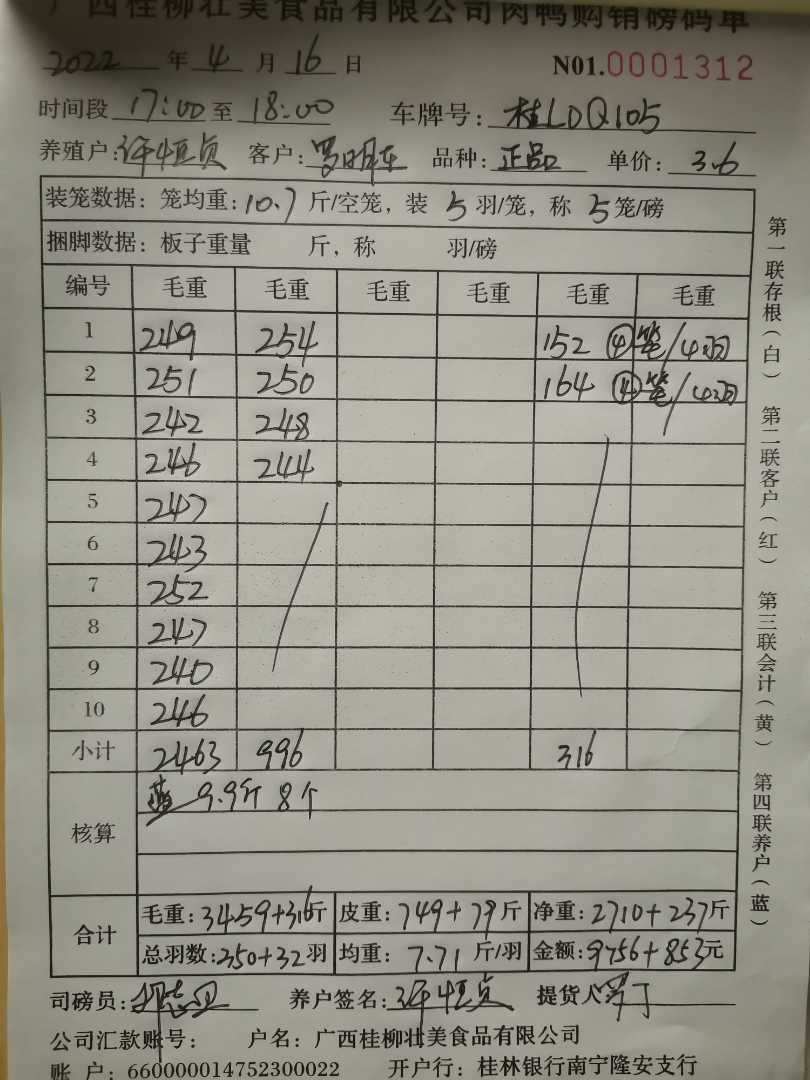 广西桂柳壮美食品有限公司肉鸭购销磅码单
2022 年 4 月 16 日 N01.0001312
时间段 17:00 至 18:00 车牌号: 桂LDQ105
养殖户: 许恒贞 客户: 罗明车 品种: 正品 单价: 3.6
装笼数据: 笼均重: 10.7 斤/空笼, 装 5 羽/笼, 称 5 笼/磅
捆脚数据: 板子重量 斤, 称 羽/磅
编号 毛重 毛重 毛重 毛重 毛重 毛重
1 249 254 152 ④笼/4羽
2 251 250 164 ④笼/4羽
3 242 248
4 246 244
5 247
6 243
7 252
8 247
9 240
10 246
小计 2463 996 316
核算 蓝 9.9斤 8个
合计 毛重: 3459+316斤 皮重: 749+79斤 净重: 2710+237斤
总羽数: 350+32羽 均重: 7.71 斤/羽 金额: 9756+853元
司磅员: 养户签名: 许恒贞 提货人
公司汇款账号: 户名: 广西桂柳壮美食品有限公司
账 户: 660000014752300022 开户行: 桂林银行南宁隆安支行
第一联存根(白) 第二联客户(红) 第三联会计(黄) 第四联养户(蓝)